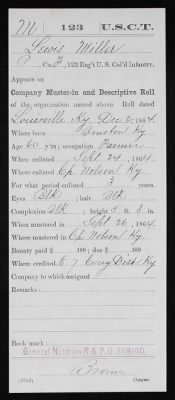 M | 123 | U.S.C.T.
Lewis Miller
P, Co. , 123 Reg't U. S. Col'd Infantry.
Appears on
Company Muster-in and Descriptive Roll
of the organization named above. Roll dated
Louisville Ky Dec 2, 1864
Where born Bourbon Ky
Age 60 y'rs; occupation Farmer
When enlisted Sept 24, 1864
Where enlisted Cp Nelson Ky
For what period enlisted 3 years.
Eyes Blk; hair Blk
Complexion Blk; height 5 ft. in.
When mustered in Sept 26, 1864
Where mustered in Cp Nelson Ky
Bounty paid $ 100; due $ 100
Where credited 7 Cong Dist Ky
Company to which assigned
Remarks:
Book mark:
General Notation R & P. O.
Brown
Copyist.